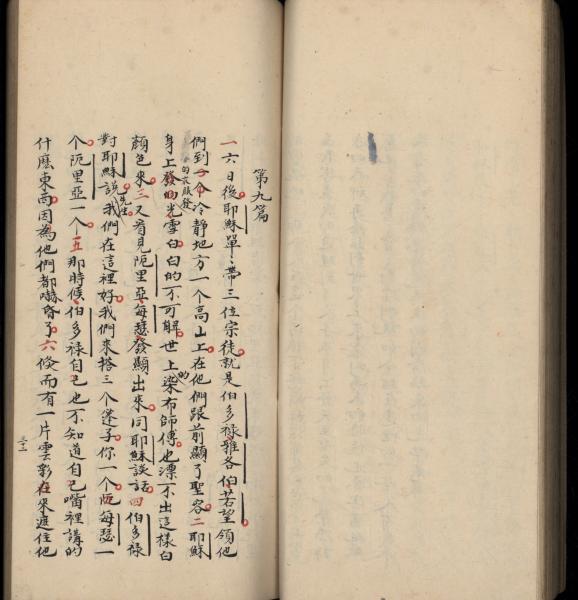 第九篇
一六日後耶穌單單帶三位宗徒就是伯多祿雅各伯若望領他
們到一个冷靜地方一个高山上在他們跟前顯了聖容二耶穌
身上的衣服發的光雪白白的不可解世上的染布師傅也漂不出這樣白
顏色來三又看見阨里亞每瑟發顯出來同耶穌談話四伯多祿
對耶穌說先生我們在這裡好我們來搭三个篷子你一个每瑟一
个阨里亞一个五那時候伯多祿自己也不知道自己嘴裡講的
什麽東西因為他們都嚇昏了六倏而有一片雲彩來遮住他
三十二